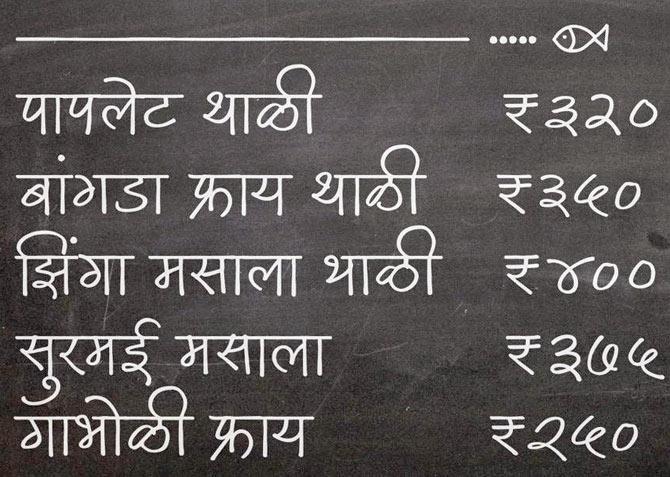 पापलेट थाळी ₹३२०
बांगडा फ्राय थाळी ₹३५०
झिंगा मसाला थाळी ₹४००
सुरमई मसाला ₹३७५
गाभोळी फ्राय ₹२५०